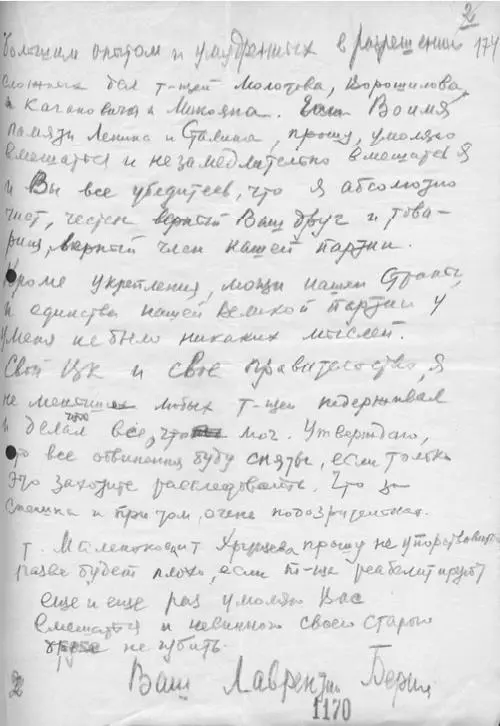 2
174
большим опытом и умудренных в разрешении
сложных дел т-щей Молотова, Ворошилова,
и Кагановича и Микояна. Во имя
памяти Ленина и Сталина, прошу, умоляю
вмешаться и незамедлительно вмешаться
и Вы все убедитесь, что я абсолютно
чист, честен верный Ваш друг и това-
рищ, верный член нашей партии.
Кроме укрепления, мощи нашей Страны,
и единства нашей Великой партии у
меня не было никаких мыслей.
Свой ЦК и свое Правительство, я
не меньше любых т-щей поддерживал
и делал все, что мог. Утверждаю,
что все обвинения буду сняты, если только
это захотите расследовать. Что за
спешка и при том, очень подозрительная.
т. Маленкова и т Хрущева прошу не упорствовать
разве будет плохо, если т-ща реабелитируют
еще и еще раз умоляю Вас
вмешаться и невинного своего старого
друга не губить.
Ваш Лаврентий Берия
2
1170